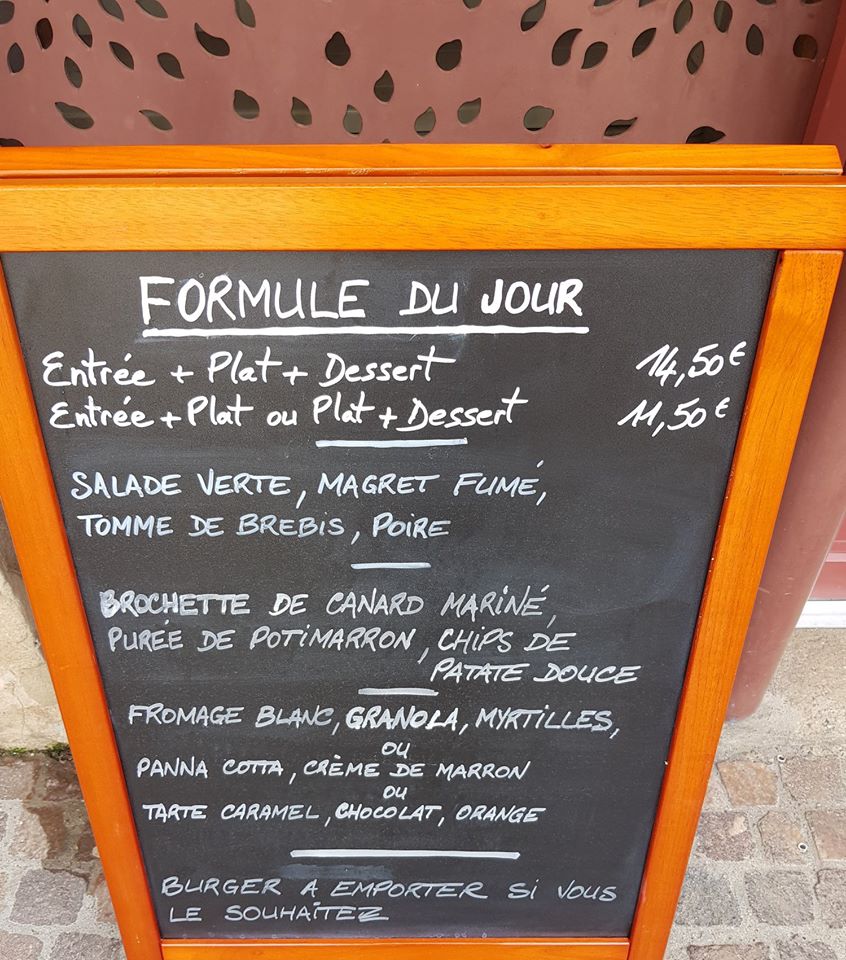 FORMULE DU JOUR
Entrée + Plat + Dessert 14,50€
Entrée + Plat ou Plat + Dessert 11,50€
SALADE VERTE, MAGRET FUMÉ,
TOMME DE BREBIS, POIRE
BROCHETTE DE CANARD MARINÉ,
PURÉE DE POTIMARRON, CHIPS DE
PATATE DOUCE
FROMAGE BLANC, GRANOLA, MYRTILLES,
OU
PANNA COTTA, CRÈME DE MARRON
OU
TARTE CARAMEL, CHOCOLAT, ORANGE
BURGER A EMPORTER SI VOUS
LE SOUHAITEZ